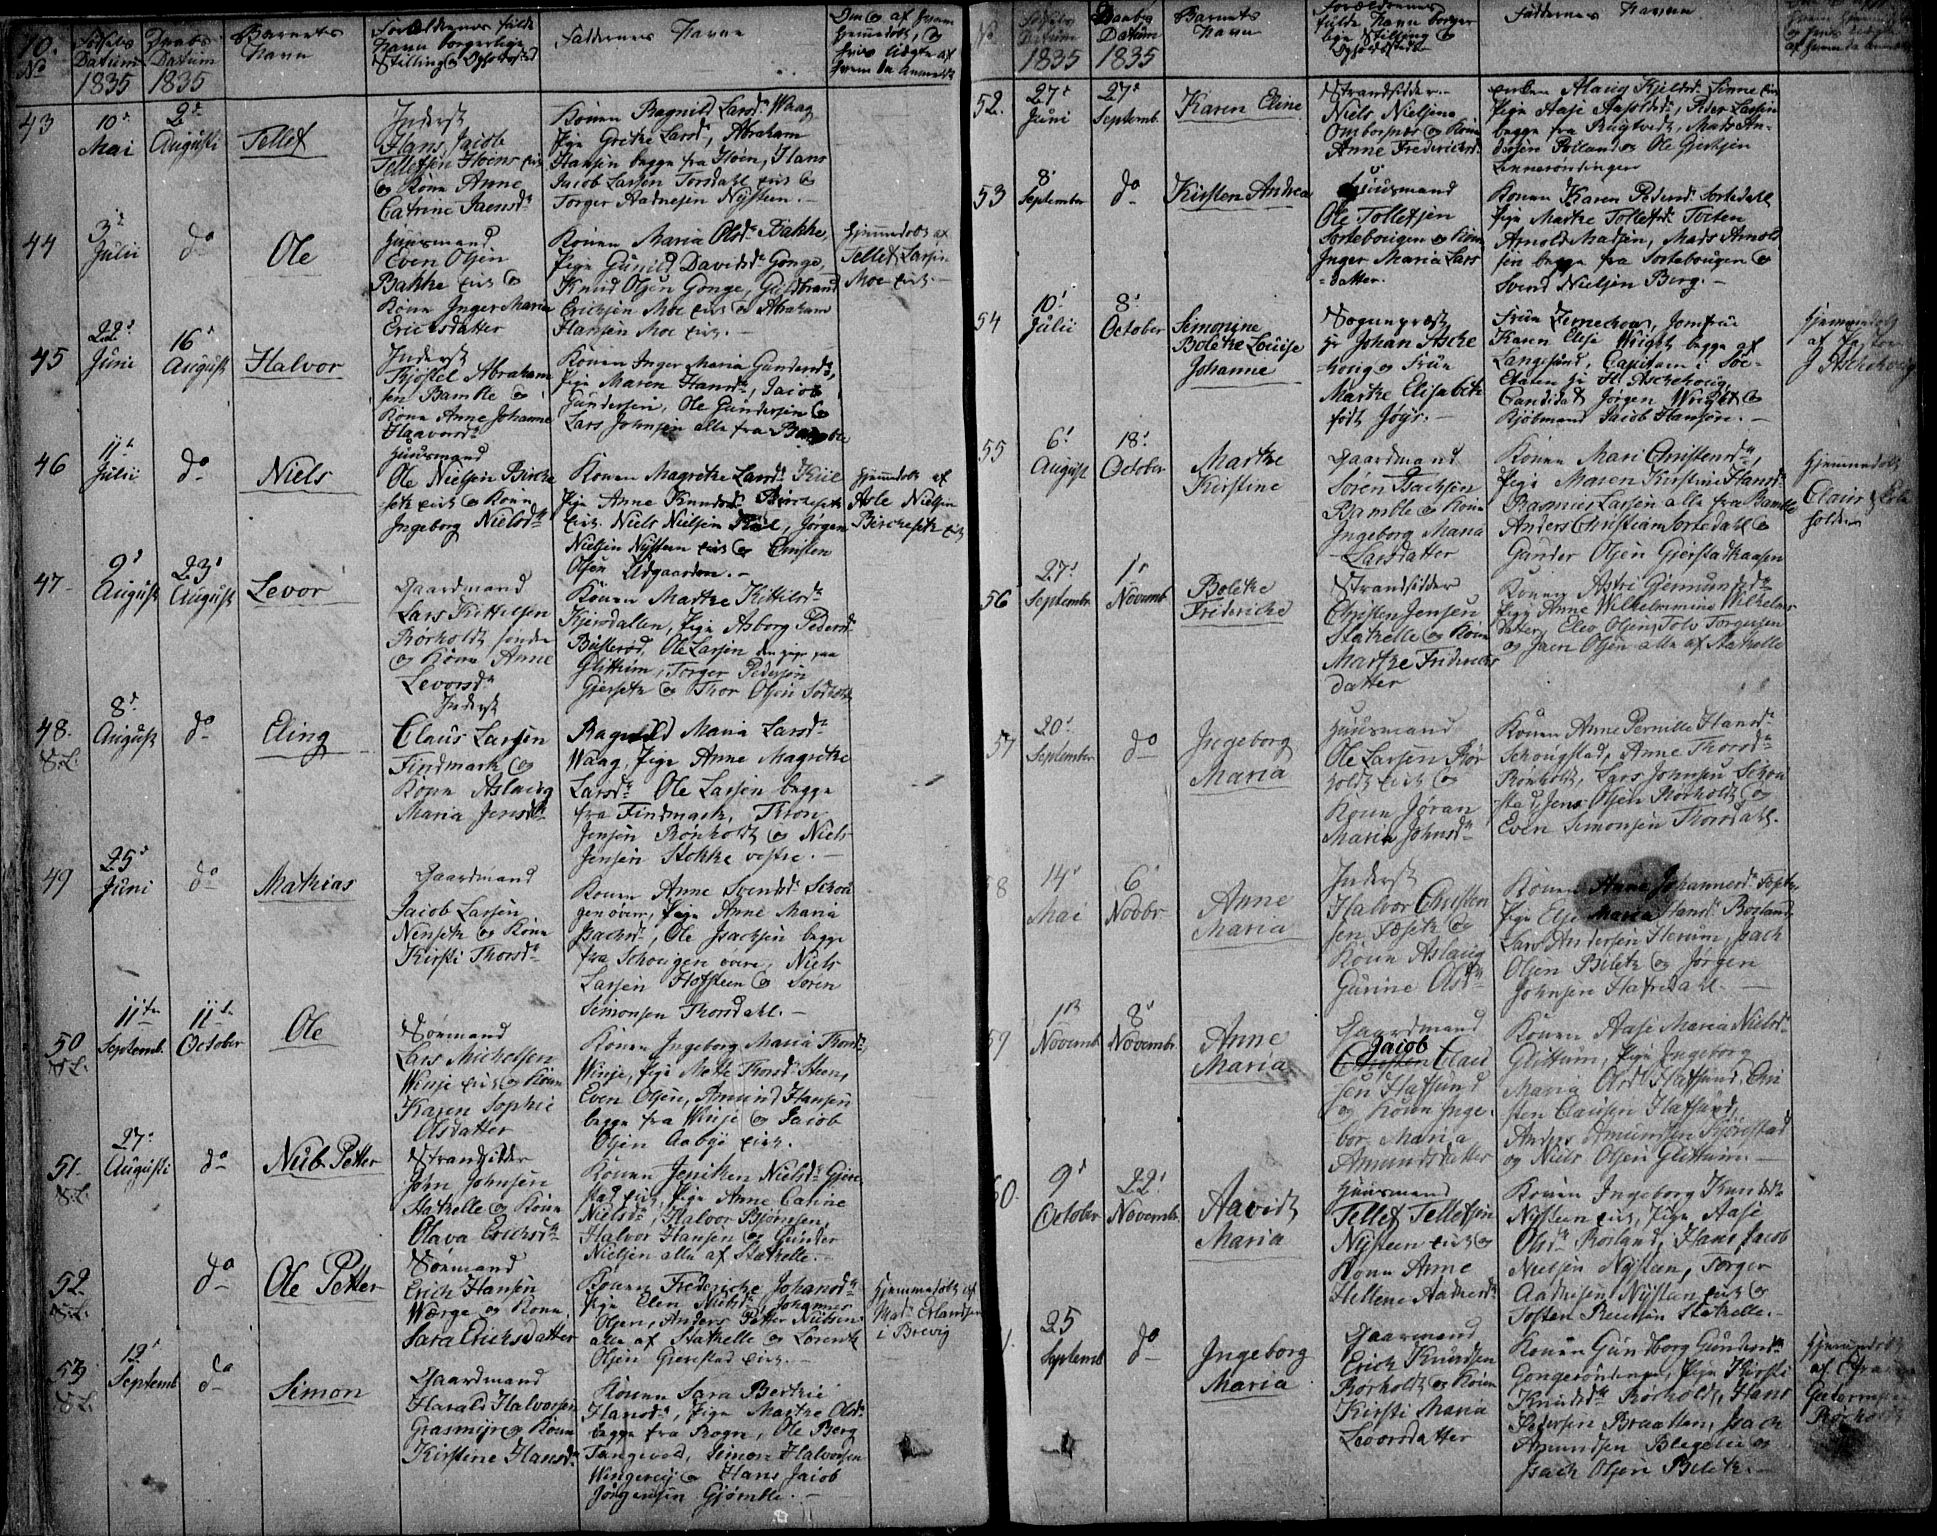 10.
No
Fødsels
Datum
1835
Daabs
Datum
1835
Barnets
Navn
Forældrenes fulde
Navn borgerlige
Stilling & Opholdssted
Faddernes Navne
43
10de
Mai
2de
Augusti
Tellef
Inderst
Hans Jacob
Tellefsen Hoens
& Kone Anne
Catrine Jaensdr
Konen Ragnild Larsdr Waag
Pige Grethe Larsdr, Abraham
Hansen begge fra Hoen, Hans
Jacob Larsen Torsdahl eies &
Torger Aadnesen Nysteen.
44
3de
Julii
do
Ole
Huusmand
Even Olsen
Bakke eies &
Kone Inger Maria
Ericksdatter
Konen Maria Olsdr Bakke,
Pige Gunild Davidsdr Gonge
Knud Olsen Gonge, Guldbrand
Ericksen Moe eies & Abraham
Hansen Moe eies.
Hjemmedøbt af
Tellef Larsen
Moe eies
45
22de
Juni
16de
August
Halvor
Inderst
Kjøstel Abraham
sen Bamble &
Kone Anne Johanne
Haavorsdr
Konen Inger Maria Gundersdr,
Pige Maren Hansdr, Jacob
Gundersen, Ole Gundersen &
Lars Johnsen alle fra Bamble
46
11te
Julii
do
Niels
Huusmand
Ole Nielsen Bircke
seth eies & Kone
Ingeborg Nielsdr
Konen Magrethe Larsdr Kiil
Pige Anne Knudsdr Birckeseth
eies. Niels Nielsen Kiil, Jørgen
Nielsen Nysteen eies & Christen
Olsen Udgaarden.
Hjemmedøbt af
Asle Nielsen
Birckeseth eies
47
9de
August
23de
August
Levor
Gaardmand
Lars Kittilsen
Rørholdt søndre
& Kone Anne
Levorsdr
Konen Marthe Kittilsdr
Kjendallen, Pige Asborg Pedersdr
Busterød, Ole Larsen
Glittum, Torger Pedersen
Gierseth & Thor Olsen
48.
S.L.
8de
August
do
Eling
Inderst
Claus Larsen
Findmark &
Kone Aslaug
Maria Jensdr
Ragnild Maria Larsdr
Waag, Pige Anne Magrethe
Larsdr Ole Larsen begge
fra Findmark, Thron
Jensen Rønholdt & Niels
Jensen Stokke vestre.
49
25de
Juni
do
Mathias
Gaardmand
Jacob Larsen
Nenseth & Kone
Kirsti Thorsdr
Konen Anne Svendsdr Schou
gen øvre, Pige Anne Maria
Isachsdr, Ole Isachsen begge
fra Schougen øvre, Niels
Larsen Hofsteen & Søren
Simonsen Thorsdahl.
50
S.L.
11te
Septemb.
11te
October
Ole
Sømand
Lars Michelsen
Winje eies & Kone
Karen Sophie
Olsdatter
Konen Ingeborg Maria Thorsdr
Winje, Pige Mette Thorsdr Steen,
Even Olsen, Amund Hansen
begge fra Winje & Jacob
Olsen Aabye eies.
51.
S.L.
27de
Augusti
do
Niels Petter
Strandsidder
John Johnsen
Stathelle & Kone
Olava Ericksdr
Konen Jenithen Nielsdr Gjere
stad eies, Pige Anne Carine
Nielsdr, Halvor Bjørnsen,
Halvor Hansen & Gunder
Nielsen alle af Stathelle.
52.
S.L.
do
Ole Petter
Sømand
Erich Hansen
Wærge & Kone
Sara Ericksdatter
Konen Frederiche Johansdr
Pige Elen Nielsdr, Johannes
Olsen, Anders Petter Nielsen
alle af Stathelle & Lorentz
Olsen Gierestad eies.
Hjemmedøbt af
Madm Erlandsen
i Brevig
53
S.L.
12te
Septemb
do
Simon
Gaardmand
Harald Halvorsen
Grasmyr & Kone
Kirstine Hansdr
Konen Sara Berthie
Hansdr, Pige Marthe Olsdr
begge fra Rogn, Ole Berg
Tangevod, Simon Halvorsen
Wingerej & Hans Jacob
Jørgensen Gjømle.
No
Fødsels
Datum
1835
Daabs
Datum
1835
Barnets
Navn
Forældrenes
fulde Navn borger
lige Stilling &
Opholdsted
Faddernes Navne
52.
27de
Juni
27de
Septemb.
Karen Eline
Strandsidder
Niels Nielsen
Omborsnæs & Kone
Anne Fredericksdr
Enken Alaug Kjeldsdr Sinne eies
Pige Aase Aasoldsdr, Peder Larsen
begge fra Rugtvedt, Mads An
dersen Polland & Ole Giertsen
Lønnerøndingen
53
8de
September
do
Kirsten Andrea
Huusmand
Ole Tollefsen
Sortebougen & Kone
Inger Maria Lars
datter.
Konen Karen Pedersdr Sortedahl
Pige Marthe Tollefsdr Tveten
Arnold Madsen, Mads Arnold
sen begge fra Sortebougen &
Svend Nielsen Berg.
54
10de
Julii
8de
October
Simonine
Bolethe Louise
Johanne
Sognepræst
Hr Johan Asche
houg & Frue
Marthe Elisabeth
født Høyer.
Frue Zernechow, Jomfrue
Karen Elise Wright begge af
Langesund, Capitain i Søe
Etaten Hr H. Aschehoug,
Candidat Jørgen Wright &
Kjøbmand Jacob Hansen.
Hjemmedøbt
af Pastor
J Aschehoug
55
6te
August
18de
October
Marthe
Kirstine
Gaardmand
Søren Isachsen
Bamble & Kone
Ingeborg Maria
Larsdatter
Konen Mari Christensdr,
Pige Maren Kirstine Hansdr
Rasmus Larsen alle fra Bamble
Anders Christian Sortedahl &
Gunder Olsen Gjerstadkaasen
Hjemmedøbt
56
27de
Septembr
1ste
Novemb
Bolethe
Fridericke
Strandsidder
Christen Jensen
Stathelle & Kone
Marthe Fridericks
datter
Konen Astri Giermundsdr
Pige Anne Wilhelmine Wilhelms
datter, Elev Olsen, Tolv Torgersen
& Jaen Olsen alle af Stathelle
57
20de
September
do
Ingeborg
Maria
Huusmand
Ole Larsen Rør
holdt eies &
Kone Jøran
Maria Johnsdr
Konen Anne Pernille Hansdr
Schougstad, Anne Thorsdr
Rønholdt, Lars Johnsen Schou
stad, Jens Olsen Rørholdt &
Even Simonsen Thorsdahl.
58
14de
Mai
6te
Novbr
Anne
Maria
Inderst
Halvor Christen
sen Fæseth &
Kone Aslaug
Gurine Olsdr
Konen Anne Johannesdr
Pige Else Maria Hansdr Rosland,
Lars Andersen Herum, Isach
Olsen Bileth & Jørgen
Johnsen Hafredahl.
59
1ste
Novemb
8de
Novembr
Anne
Maria
Gaardmand
Jacob
Christen Clau
sen Hafsund
& Kone Inge
bor Maria
Amundsdatter
Konen Aase Maria Nielsdr
Glittum, Pige Ingeborg
Maria Olsdr Hafsund, Chri
sten Clausen Hafsund,
Anders Amundsen Kjørestad
og Niels Olsen Glittum.
60.
9de
October
22de
Novemb.
Aavidt
Maria
Huusmand
Tellef Tellefsen
Nysteen eies &
Kone Anne
Hellene Aadnesdr
Konen Ingeborg Knudsdr
Nysteen eies, Pige Aase
Olsdr Rosland, Hans Jacob
Nielsen Nysteen, Torger
Aadnesen Nysteen eies &
Stathelle.
25
Septemb
do
Ingeborg
Maria
Gaarmand
Erich Knudsen
Rørholdt & Kone
Kirsti Maria
Levorsdatter
Konen Gundborg Gundersdr
Gongerøndingen, Pige Kirsti
Knudsdr Rørholdt, Hans
Pedersen Braatten, Isach
Amundsen Blegelie &
Isach Olsen Bileth.
Hjemmedøbt
af
Rørholdt